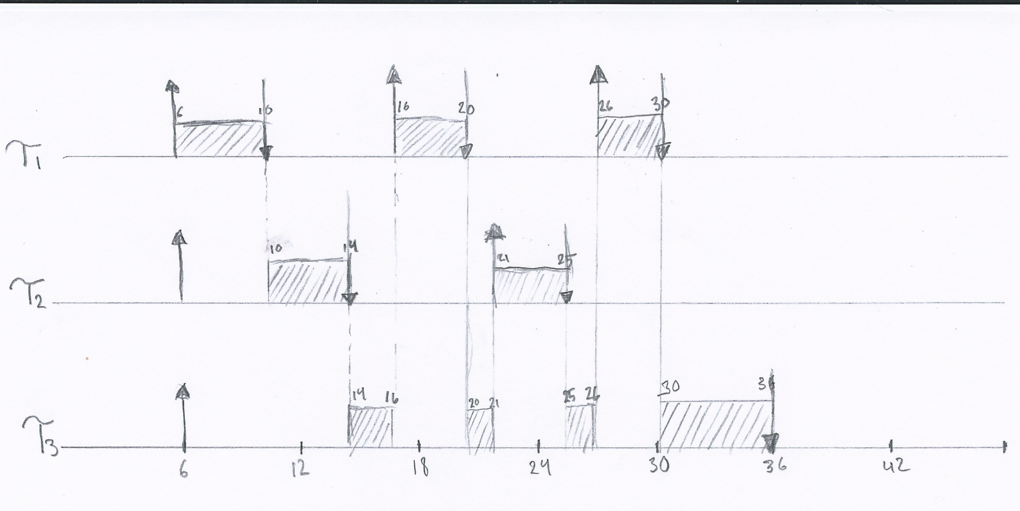 6 10 16 20 26 30
τ1
10 14 21 25
τ2
14 16 20 21 25 26 30 36
τ3
6 12 18 24 30 36 42